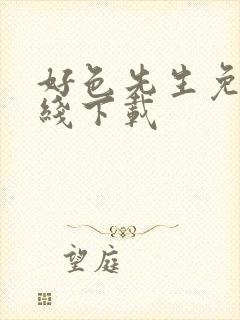 好色先生免
线下载
望庭